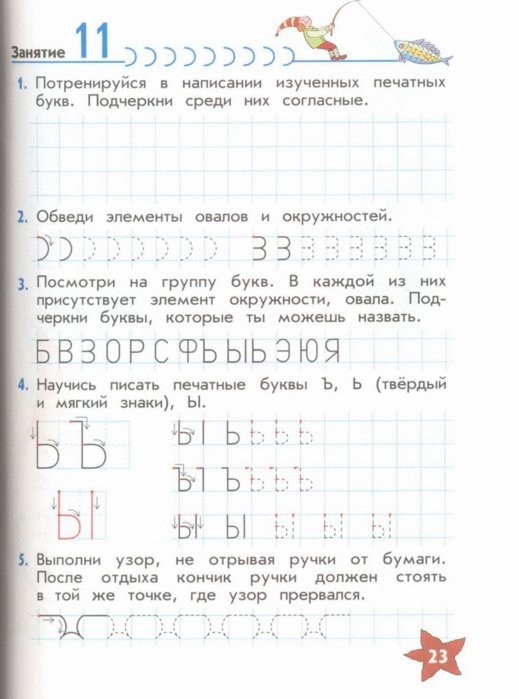 Занятие 11
1. Потренируйся в написании изученных печатных
букв. Подчеркни среди них согласные.
2. Обведи элементы овалов и окружностей.
З З З З З З З З
3. Посмотри на группу букв. В каждой из них
присутствует элемент окружности, овала. Под-
черкни буквы, которые ты можешь назвать.
Б В З О Р С Ф Ъ Ы Ь Э Ю Я
4. Научись писать печатные буквы Ъ, Ь (твёрдый
и мягкий знаки), Ы.
Ь Ъ
Ь I Ь Ь Ь Ь
Ъ I Ъ Ъ Ъ Ъ
Ы
Ы Ы Ы Ы Ы
5. Выполни узор, не отрывая ручки от бумаги.
После отдыха кончик ручки должен стоять
в той же точке, где узор прервался.
23